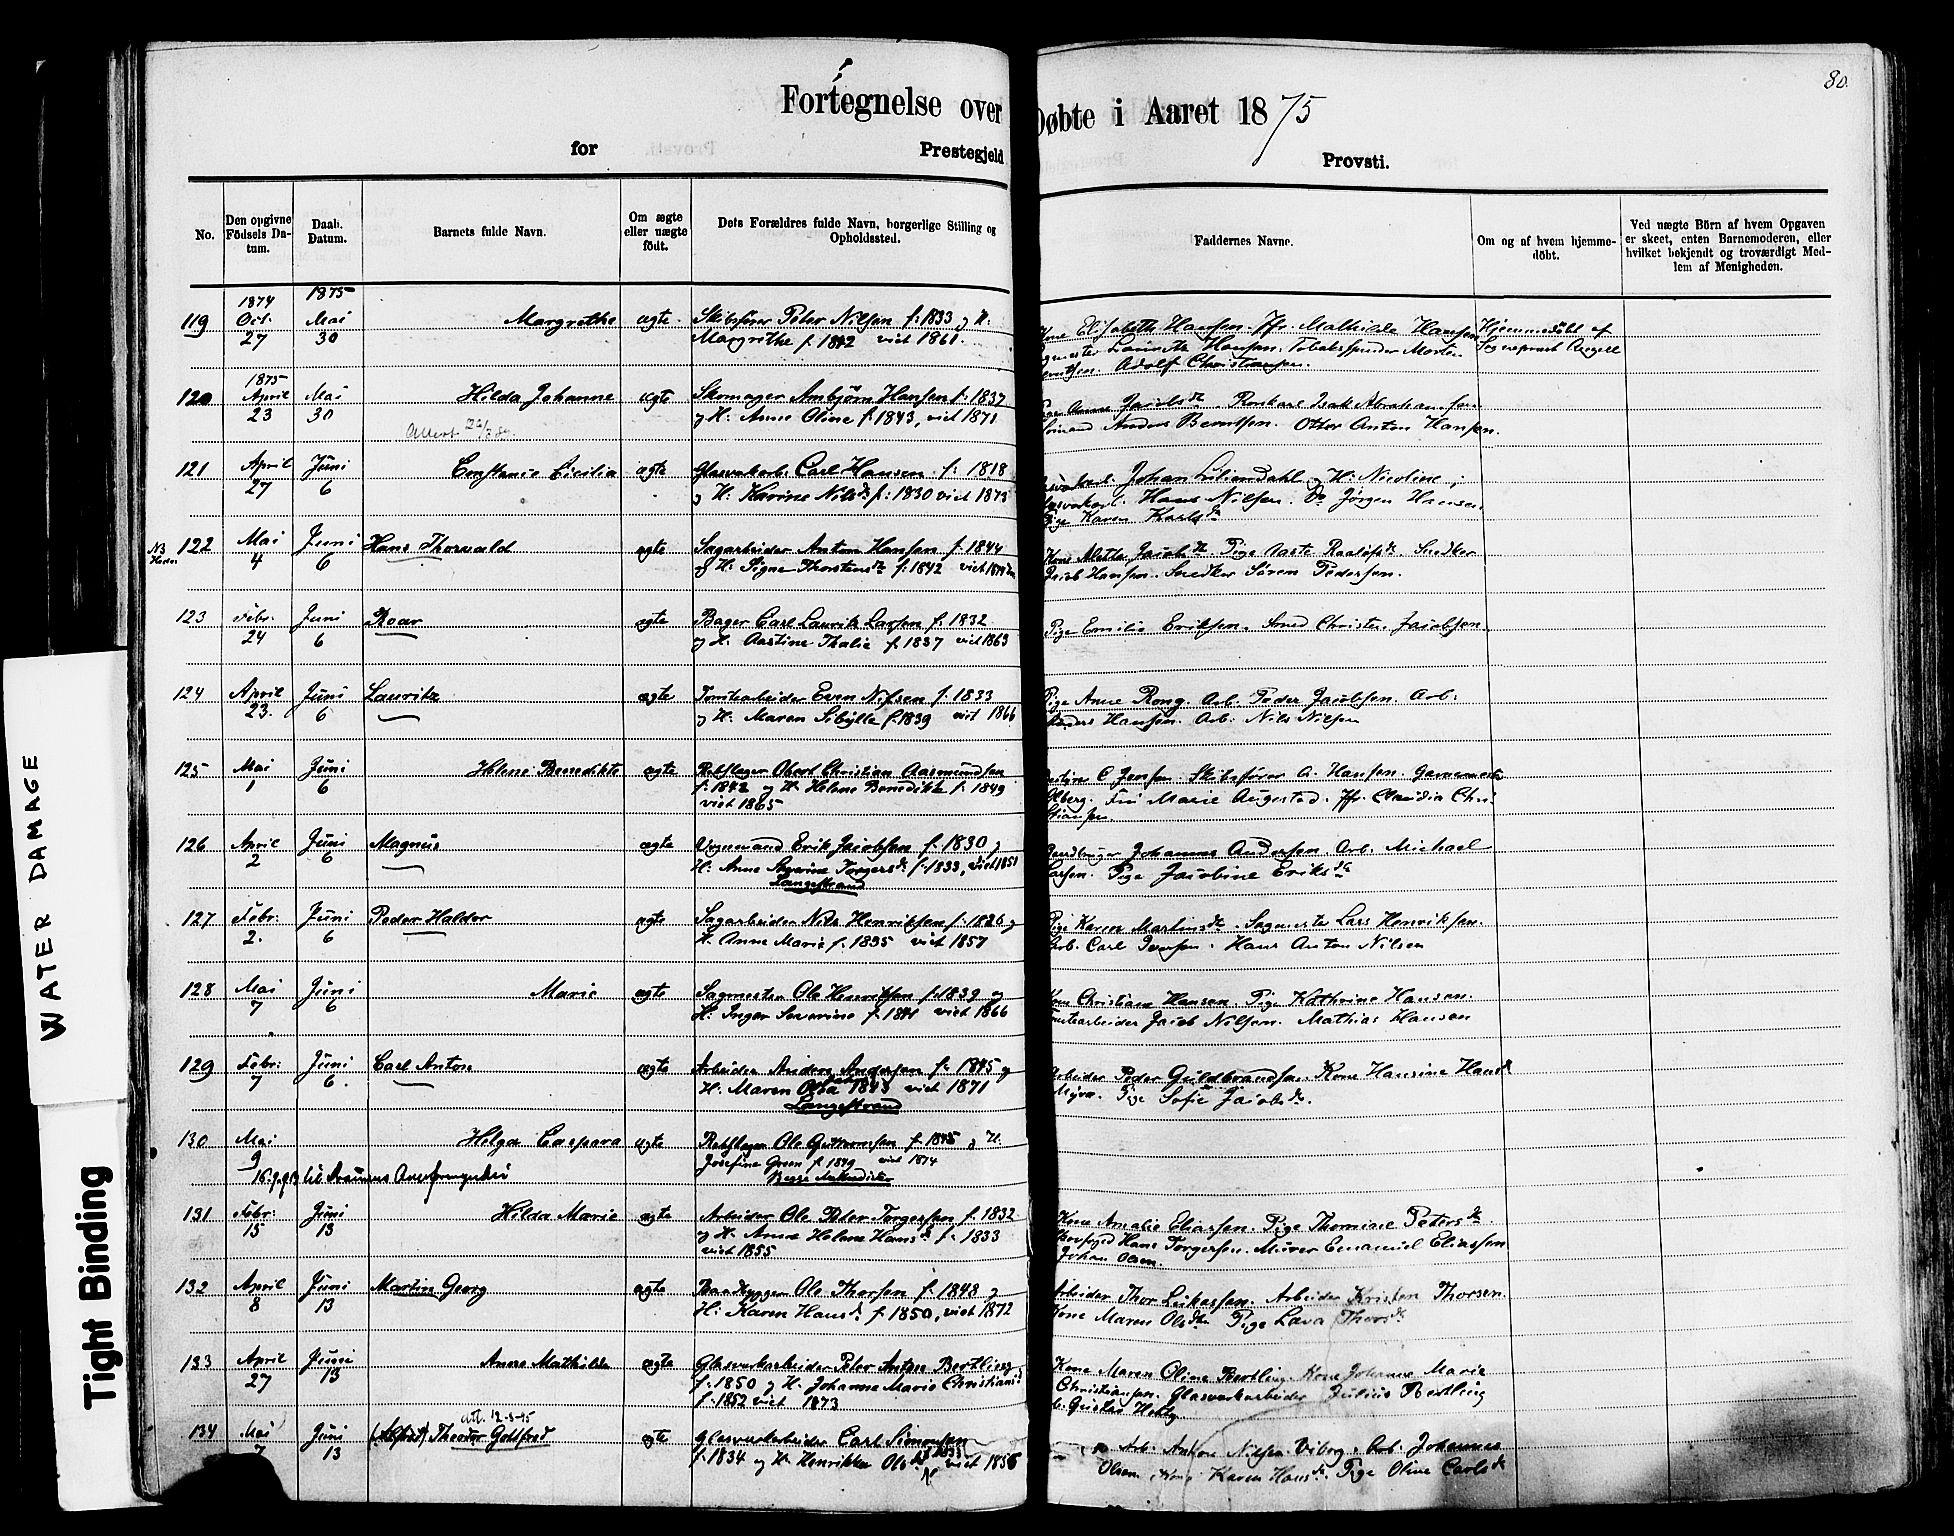 80.
Fortegnelse over Døbte i Aaret 1875
for Prestegjeld Provsti.
No. Den opgivne Födsels Da-tum. Daab. Datum. Barnets fulde Navn. Om ægte eller uægte födt. Dets Forældres fulde Navn, borgerlige Stilling og Opholdssted. Faddernes Navne. Om og af hvem hjemme-döbt. Ved uægte Börn af hvem Opgaven er skeet, enten Barnemoderen, eller hvilket bekjendt og troværdigt Med-lem af Menigheden.
1874 1875
119 Oct. 27 Mai 30 Margrethe ægte Skibsfører Peter Nilsen f. 1833 og H.
Margrethe f. 1842 viet 1861.
Kone Elisabeth Hansen. Jfr. Mathilde Hansen Hjemmedöbt af
Lauritz Hansen. Tobakspinder Morten Sogneprest Angell
Adolf Christiansen.
1875
120 April 23 Mai 30 Hilda Johanne ægte Skomager Ambjørn Hansen f. 1837
og H. Anne Oline f. 1843, viet 1871
Isak Abrahamsen
Anders Berntsen. Otter Anton Hansen.
121 April 27 Juni 6 Constance Cicilia ægte Glasverkarb. Carl Hansen f. 1818
og H. Karine Nilsd. f. 1830 viet 1873
Johan Liliendahl og H. Nicoline;
Hans Nilsen. Do Jørgen Hansen.
Pige Karen Karlsd.
122 Mai 4 Juni 6 Hans Thorvald ægte Sagarbeider Anton Hansen f. 1844
og H. Signe Thorstensd. f. 1842
Kone Alethe Jacobsd. Pige Aaste Snedker
Jacob Hansen. Snedker Søren Pedersen.
123 Febr. 24 Juni 6 Roar ægte Bager Carl Lauritz Larsen f. 1832
og H. Aastine Thalie f. 1837 viet 1863
Pige Emilie Eriksen. Smed Christen Jacobsen
124 April 23. Juni 6 Lauritz ægte Tomtearbeider Even Nilsen f. 1833
og H. Maren Sibylle f. 1839 viet 1866
Pige Anne Rong. Arb. Peder Jacobsen. Arb.
Anders Hansen. Arb: Nils Nilsen
125 Mai 1 Juni 6 Helene Benedikte ægte Rebslager Obert Christian Aasmundsen
f. 1842 og H. Helene Benedikte f. 1849
viet 1865
C Jensen. Skibsfører A. Hansen.
Marie Augestad. Jfr. Claudia Chri-
stiansen
126 April 2 Juni 6 Magnus ægte Vognmand Erik Jacobsen f. 1830 og
H. Anne Torgersd. f. 1833, viet 1851
Langestrand
Johannes Andersen. Arb. Michael
Larsen. Pige Jacobine Eriksd.
127 Febr: 2. Juni 6 Peder Halder ægte Sagarbeider Nils Henriksen f. 1826 og
H. Anne Marie f. 1835 viet 1857
Pige Karen Martinsd. Sagmester Lars Henriksen.
Arb. Carl Iversen. Hans Anton Nilsen
128 Mai 7 Juni 6 Marie ægte Sagmester Ole Henriksen f. 1839 og
H. Inger Severine f. 1841 viet 1866
Kone Christiane Hansen. Pige Kathrine Hansen.
Tomtearbeider Jacob Nilsen. Mathias Hansen
129 Febr: 7 Juni 6. Carl Anton ægte Arbeider Anders Andersen f. 1845 og
H. Maren 1843 viet 1871
Langestrand
Arbeider Peder Guldbrandsen. Kone Hansine Hansd.
Myra. Pige Sofie Jacobsd.
130 Mai 9 Helga Caspara ægte Rebslager Ole Guttormsen f. 1845 og H.
Josefine Green f. 1849 viet 1874
131 Febr: 15 Juni 13 Hilda Marie ægte Arbeider Ole Peter Torgersen f. 1832
og H. Anne Helene Hansd. f. 1833
viet 1855
Kone Amalie Eliassen. Pige Thomine Petersd.
Hans Torgersen. Murer Emanuel Eliassen
Johan Olsen.
132 April 8 Juni 13 Martin Georg ægte Baadbygger Ole Thorsen f. 1848 og
H. Karen Hansd. f. 1850, viet 1872
Arbeider Thor Lukassen. Arbeider Kristen Thorsen.
Kone Maren Olsd. Pige Lava Thorsd.
133 April 27 Juni 13 Anne Mathilde ægte Glasverkarbeider Peter Anton Bertling
f. 1850 og H. Johanne Marie Christiansd.
f. 1852 viet 1873
Kone Maren Oline Bertling. Kone Johanne Marie
Christiansen. Glasverkarbeider Julius Bertling
134 Mai 7 Juni 13 (Alfred) Theodor Gottfred ægte Glasverkarbeider Carl Simonsen
f. 1834 og H. Henrikke Olsd. viet 1856
Arb. Anton Nilsen Viborg. Arb. Johannes
Olsen. Karen Hansd. Pige Oline Carlsd.
WATER DAMAGE
Tight Binding